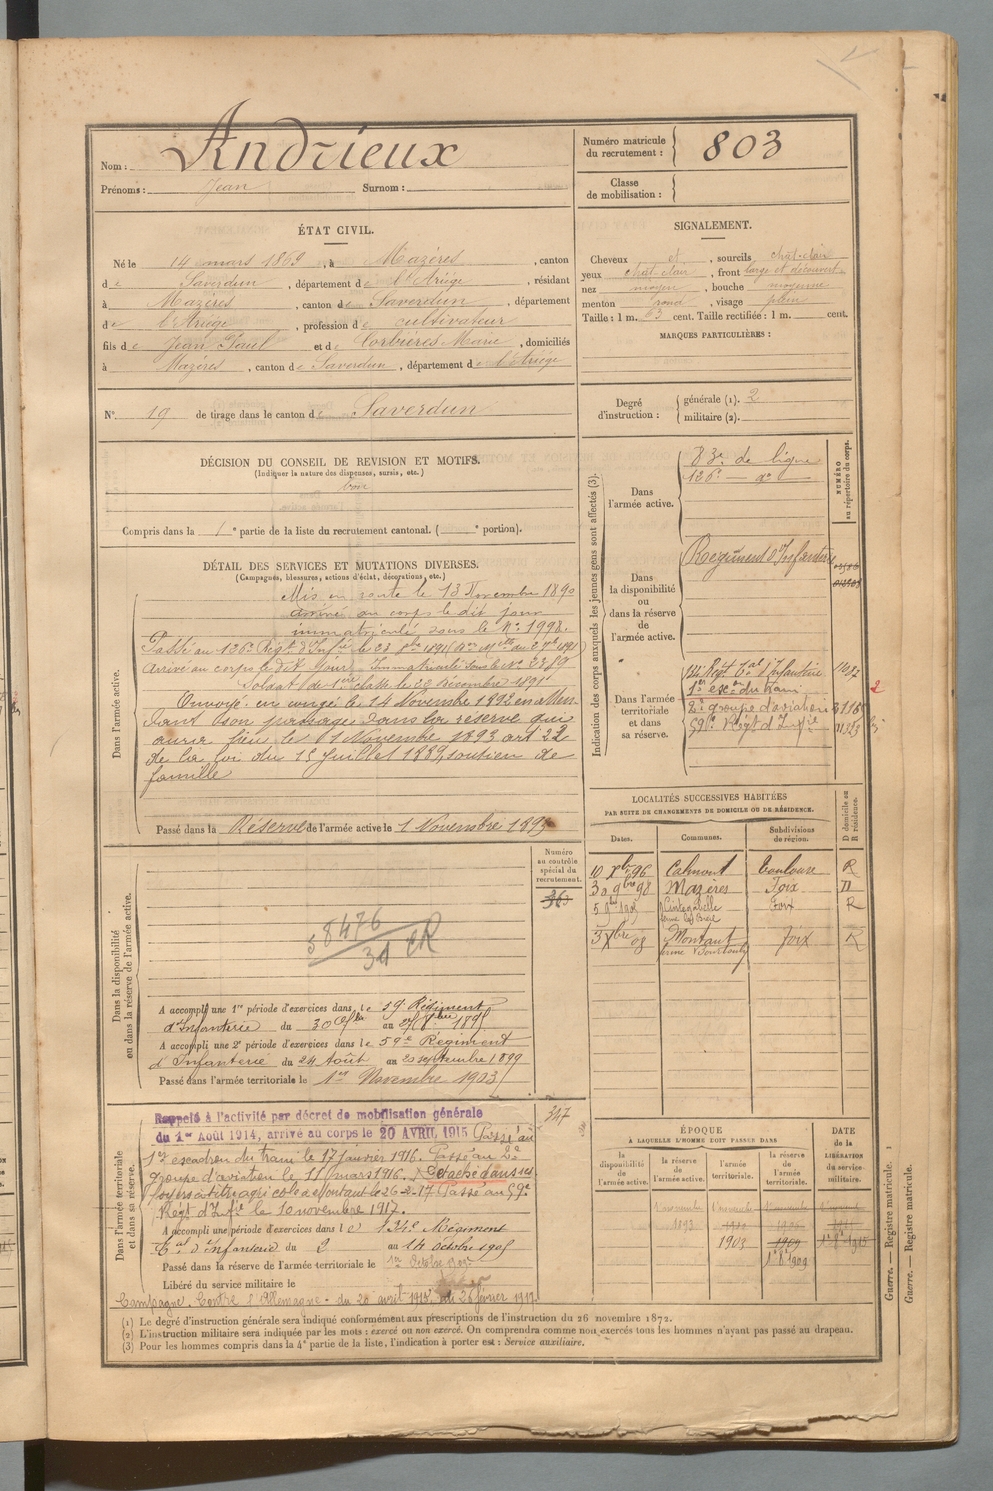 Nom : Andrieux
Prénoms : Jean Surnom :
Numéro matricule du recrutement : 803
Classe de mobilisation :
ÉTAT CIVIL.
Né le 14 mars 1869, à Mazères, canton
de Saverdun, département de l'Ariège, résidant
à Mazères, canton de Saverdun, département
de l'Ariège, profession de cultivateur
fils de Jean Paul et de Corbières Marie, domiciliés
à Mazères, canton de Saverdun, département de l'Ariège
N° 19 de tirage dans le canton de Saverdun
SIGNALEMENT.
Cheveux et, sourcils chât-clair
yeux chât clair, front large et découvert
nez moyen, bouche moyenne
menton rond, visage plein
Taille : 1 m. 63 cent. Taille rectifiée : 1 m. cent.
MARQUES PARTICULIÈRES :
Degré d'instruction : générale (1). 2
militaire (2).
DÉCISION DU CONSEIL DE REVISION ET MOTIFS.
(Indiquer la nature des dispenses, sursis, etc.)
bon
Compris dans la 1e partie de la liste du recrutement cantonal. ( e portion).
DÉTAIL DES SERVICES ET MUTATIONS DIVERSES.
(Campagnes, blessures, actions d'éclat, décorations, etc.)
Dans l'armée active.
Mis en route le 13 Novembre 1890
arrivé au corps le dit jour
immatriculé sous le N° 1998.
Passé au 126e Régt d'Infie le 23 8bre 1891
arrivé au corps le dit jour. Immatriculé sous le No 2389
Soldat de 1ère classe le 22 Décembre 1891
Envoyé en congé le 14 Novembre 1892 en atten-
dant son passage dans la réserve qui
aura lieu le 1 Novembre 1893 art 22
de la loi du 15 juillet 1889, soutien de
famille
Passé dans la Réserve de l'armée active le 1 Novembre 1893
Indication des corps auxquels les jeunes gens sont affectés (3).
NUMÉRO au répertoire du corps.
Dans l'armée active.
83e de ligne
126e — do
Dans la disponibilité ou dans la réserve de l'armée active.
Régiment d'Infanterie
Dans l'armée territoriale et dans sa réserve.
134 Régt Tal d'Infanterie
1er escon du train
2e groupe d'aviation
59e Régt d'Infie
2
LOCALITÉS SUCCESSIVES HABITÉES
PAR SUITE DE CHANGEMENTS DE DOMICILE OU DE RÉSIDENCE.
Dates. Communes. Subdivisions de région. D domicile ou R résidence.
10 Xbre 96 Calmont Toulouse R
30 9bre 98 Mazères Foix D
5 9bre 1905 Cintegabelle Foix R
3 Xbre 08 Montaut Foix R
Dans la disponibilité ou dans la réserve de l'armée active.
Numéro au contrôle spécial du recrutement.
363
58476
31 CR
A accompli une 1re période d'exercices dans le 59e Régiment
d'Infanterie du 30 au 1895
A accompli une 2e période d'exercices dans le 59e Régiment
d'Infanterie du 24 Août au 20 septembre 1899
Passé dans l'armée territoriale le 1er Novembre 1903
Dans l'armée territoriale et dans sa réserve.
Rappelé à l'activité par décret de mobilisation générale
du 1er Août 1914, arrivé au corps le 20 AVRIL 1915 Passé au
1er escadron du train le 17 janvier 1916. Passé au 2e
groupe d'aviation le 11 mars 1916. Détaché dans ses
foyers à titre agricole à Montaut le 26-2-17 Passé au 59e
Régt d'Infie le 10 novembre 1917.
347
A accompli une période d'exercices dans le 134e Régiment
Tal d'Infanterie du 2 au 14 octobre 1905
Passé dans la réserve de l'armée territoriale le 1er Octobre 1909
Libéré du service militaire le
Campagne. Contre l'Allemagne - du 20 avril 1915 au 26 février 1917
ÉPOQUE
À LAQUELLE L'HOMME DOIT PASSER DANS
la disponibilité de l'armée active. la réserve de l'armée active. l'armée territoriale. la réserve de l'armée territoriale.
DATE de la LIBÉRATION du service militaire.
1893 1903 1909
(1) Le degré d'instruction générale sera indiqué conformément aux prescriptions de l'instruction du 26 novembre 1872.
(2) L'instruction militaire sera indiquée par les mots : exercé ou non exercé. On comprendra comme non exercés tous les hommes n'ayant pas passé au drapeau.
(3) Pour les hommes compris dans la 4e partie de la liste, l'indication à porter est : Service auxiliaire.
Guerre. — Registre matricule. 1
Guerre. — Registre matricule.